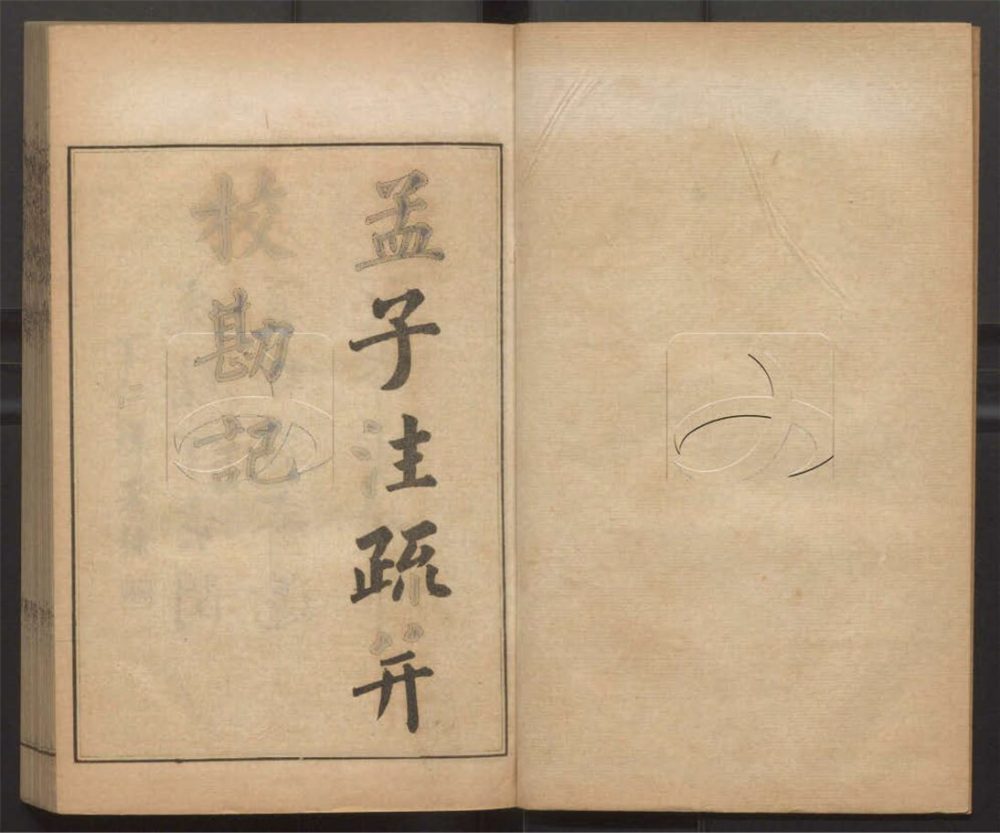 孟子注疏并
挍勘記